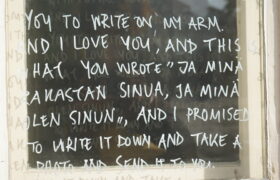 YOU TO WRITE ON MY ARM.
ND I LOVE YOU, AND THIS
HAT YOU WROTE " JA MINÄ
RAKASTAN SINUA, JA MINÄ
OLEN SINUN„, AND I PROMISED
TO WRITE IT DOWN AND TAKE A
PHOTO AND SEND IT TO YOU.